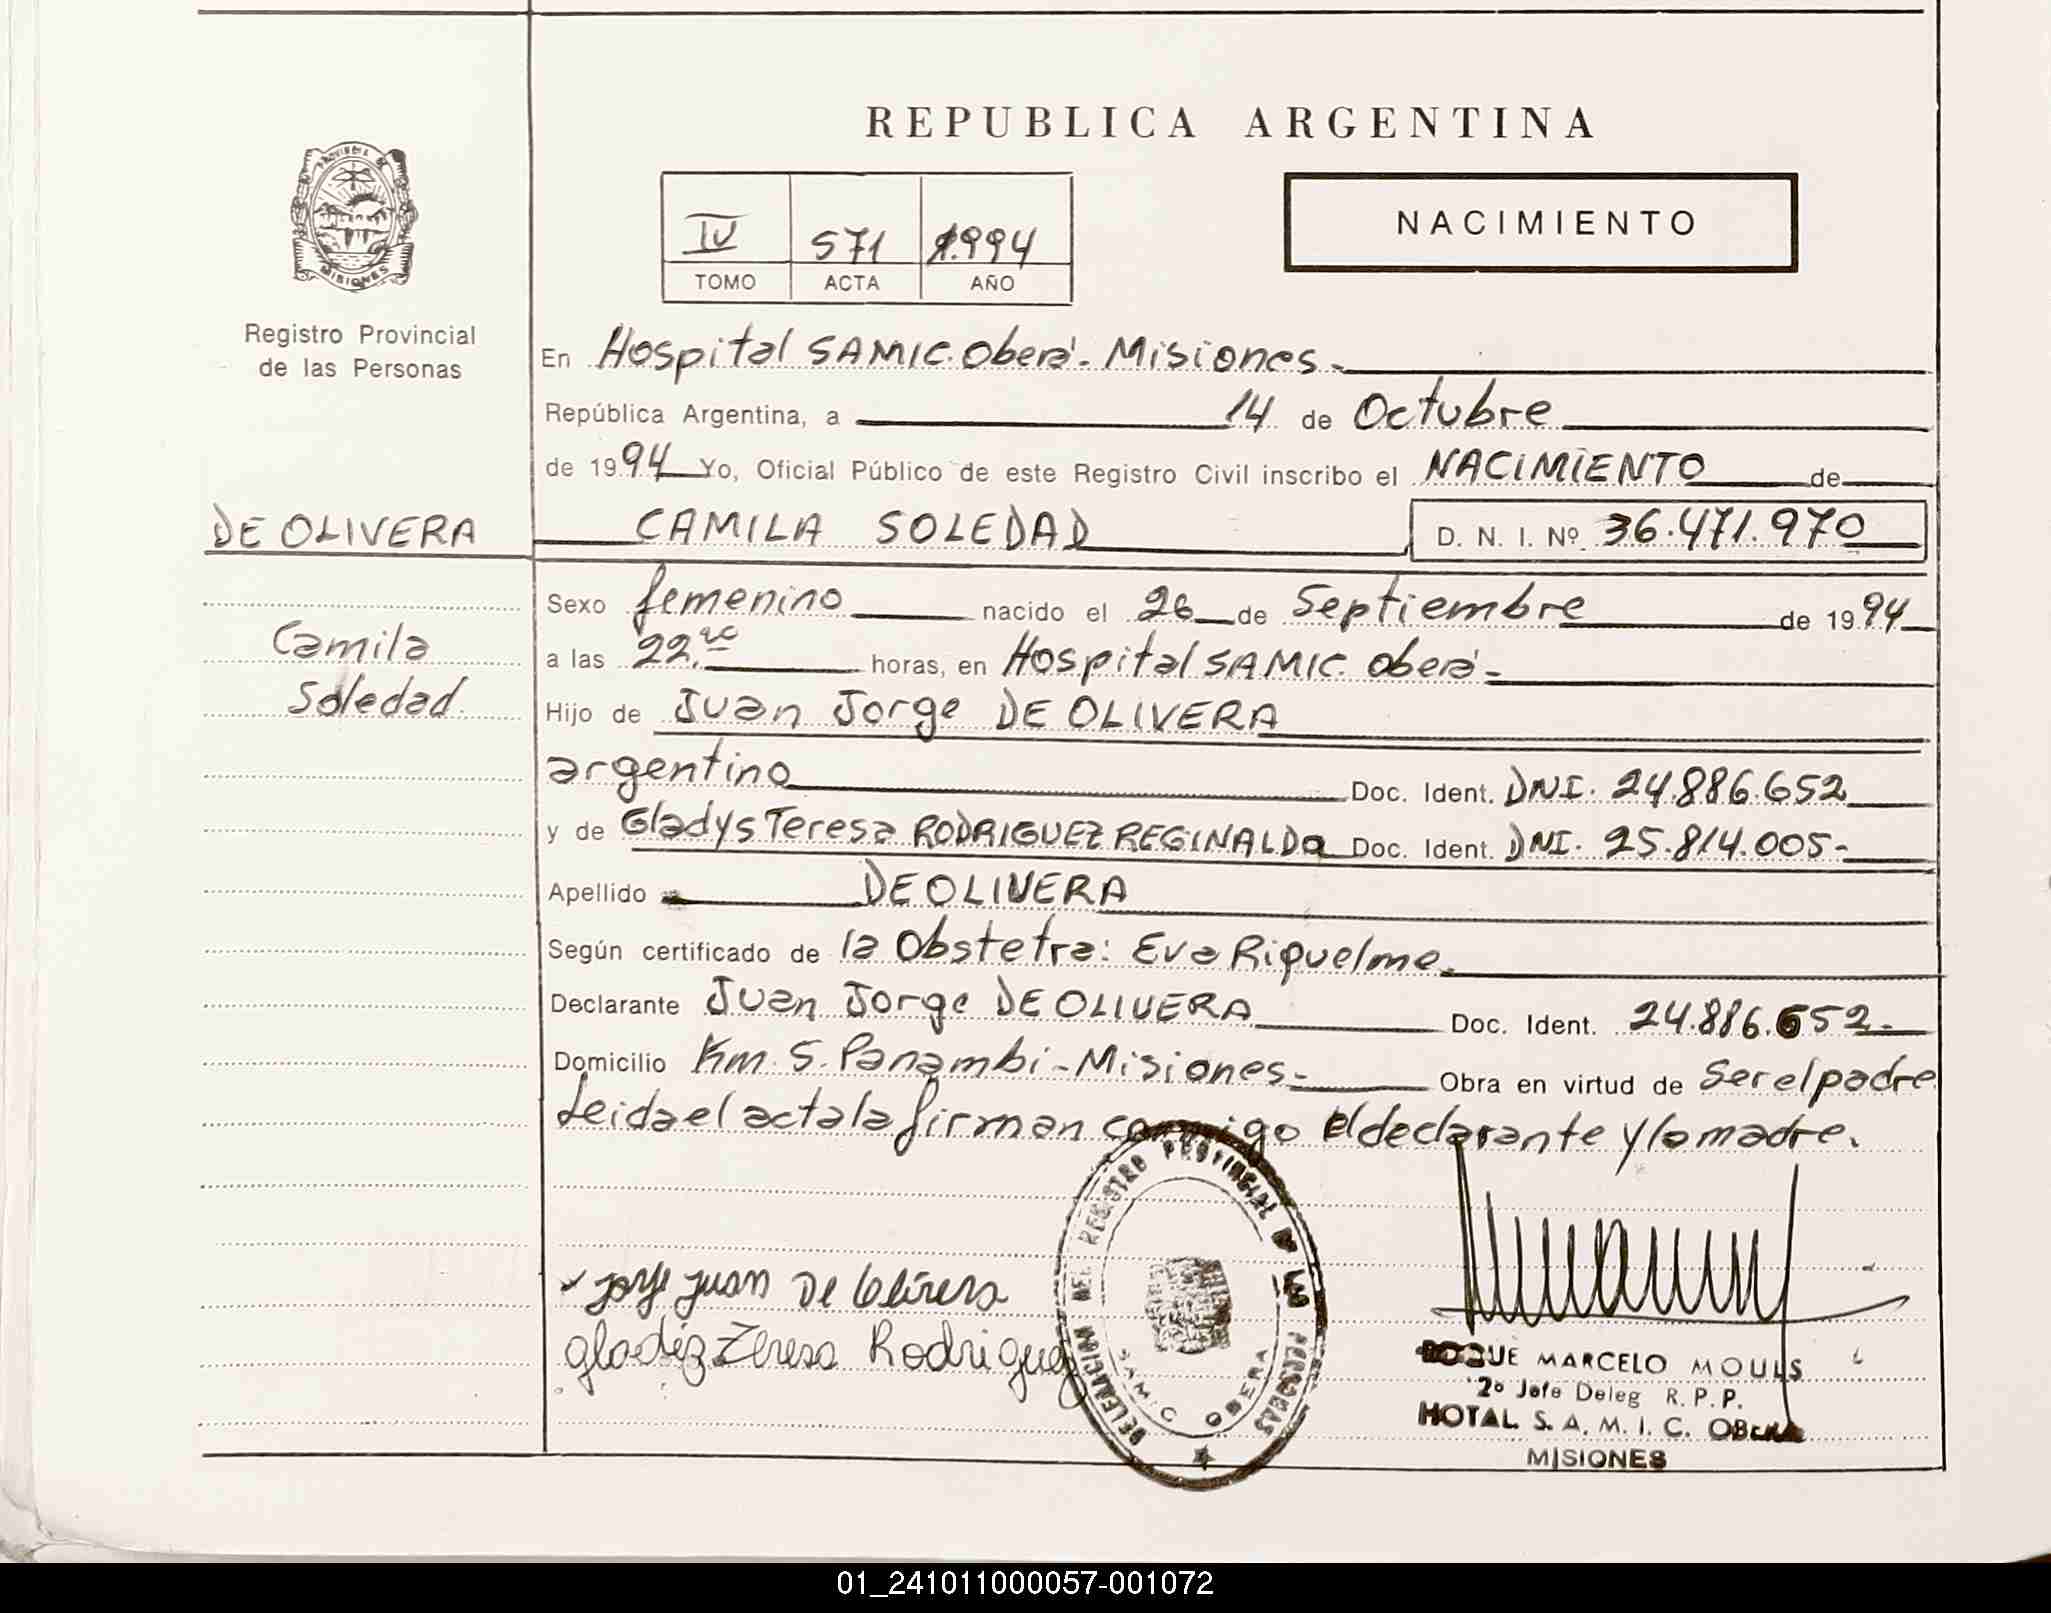 REPUBLICA ARGENTINA
PROVINCIA DE
MISIONES
Registro Provincial
de las Personas
IV 571 1.994
TOMO ACTA AÑO
NACIMIENTO
En Hospital SAMIC. Oberá - Misiones.-
República Argentina, a 14 de Octubre
de 1994 Yo, Oficial Público de este Registro Civil inscribo el NACIMIENTO de
DE OLIVERA CAMILA SOLEDAD D. N. I. Nº 36.471.970
Sexo femenino nacido el 26 de Septiembre de 1994
Camila
Soledad.
a las 22. horas, en Hospital SAMIC. Oberá -
Hijo de Juan Jorge DE OLIVERA
argentino Doc. Ident. DNI. 24.886.652
y de Gladys Teresa RODRIGUEZ REGINALDO Doc. Ident. DNI. 25.814.005-
Apellido DE OLIVERA
Según certificado de la Obstetra: Eva Riquelme.
Declarante Juan Jorge DE OLIVERA Doc. Ident. 24.886.652-
Domicilio Km. 5. Panambi - Misiones - Obra en virtud de Ser el padre
Leida el acta la firman conmigo El declarante y la madre.
Jorge Juan De Olivera
gladiz Teresa Rodriguez
DELEGACION DEL REGISTRO PROVINCIAL DE LAS PERSONAS
SAMIC OBERA
ROQUE MARCELO MOULS
2º Jefe Deleg R. P. P.
HOTAL S. A. M. I. C. OBERA
MISIONES
01_241011000057-001072